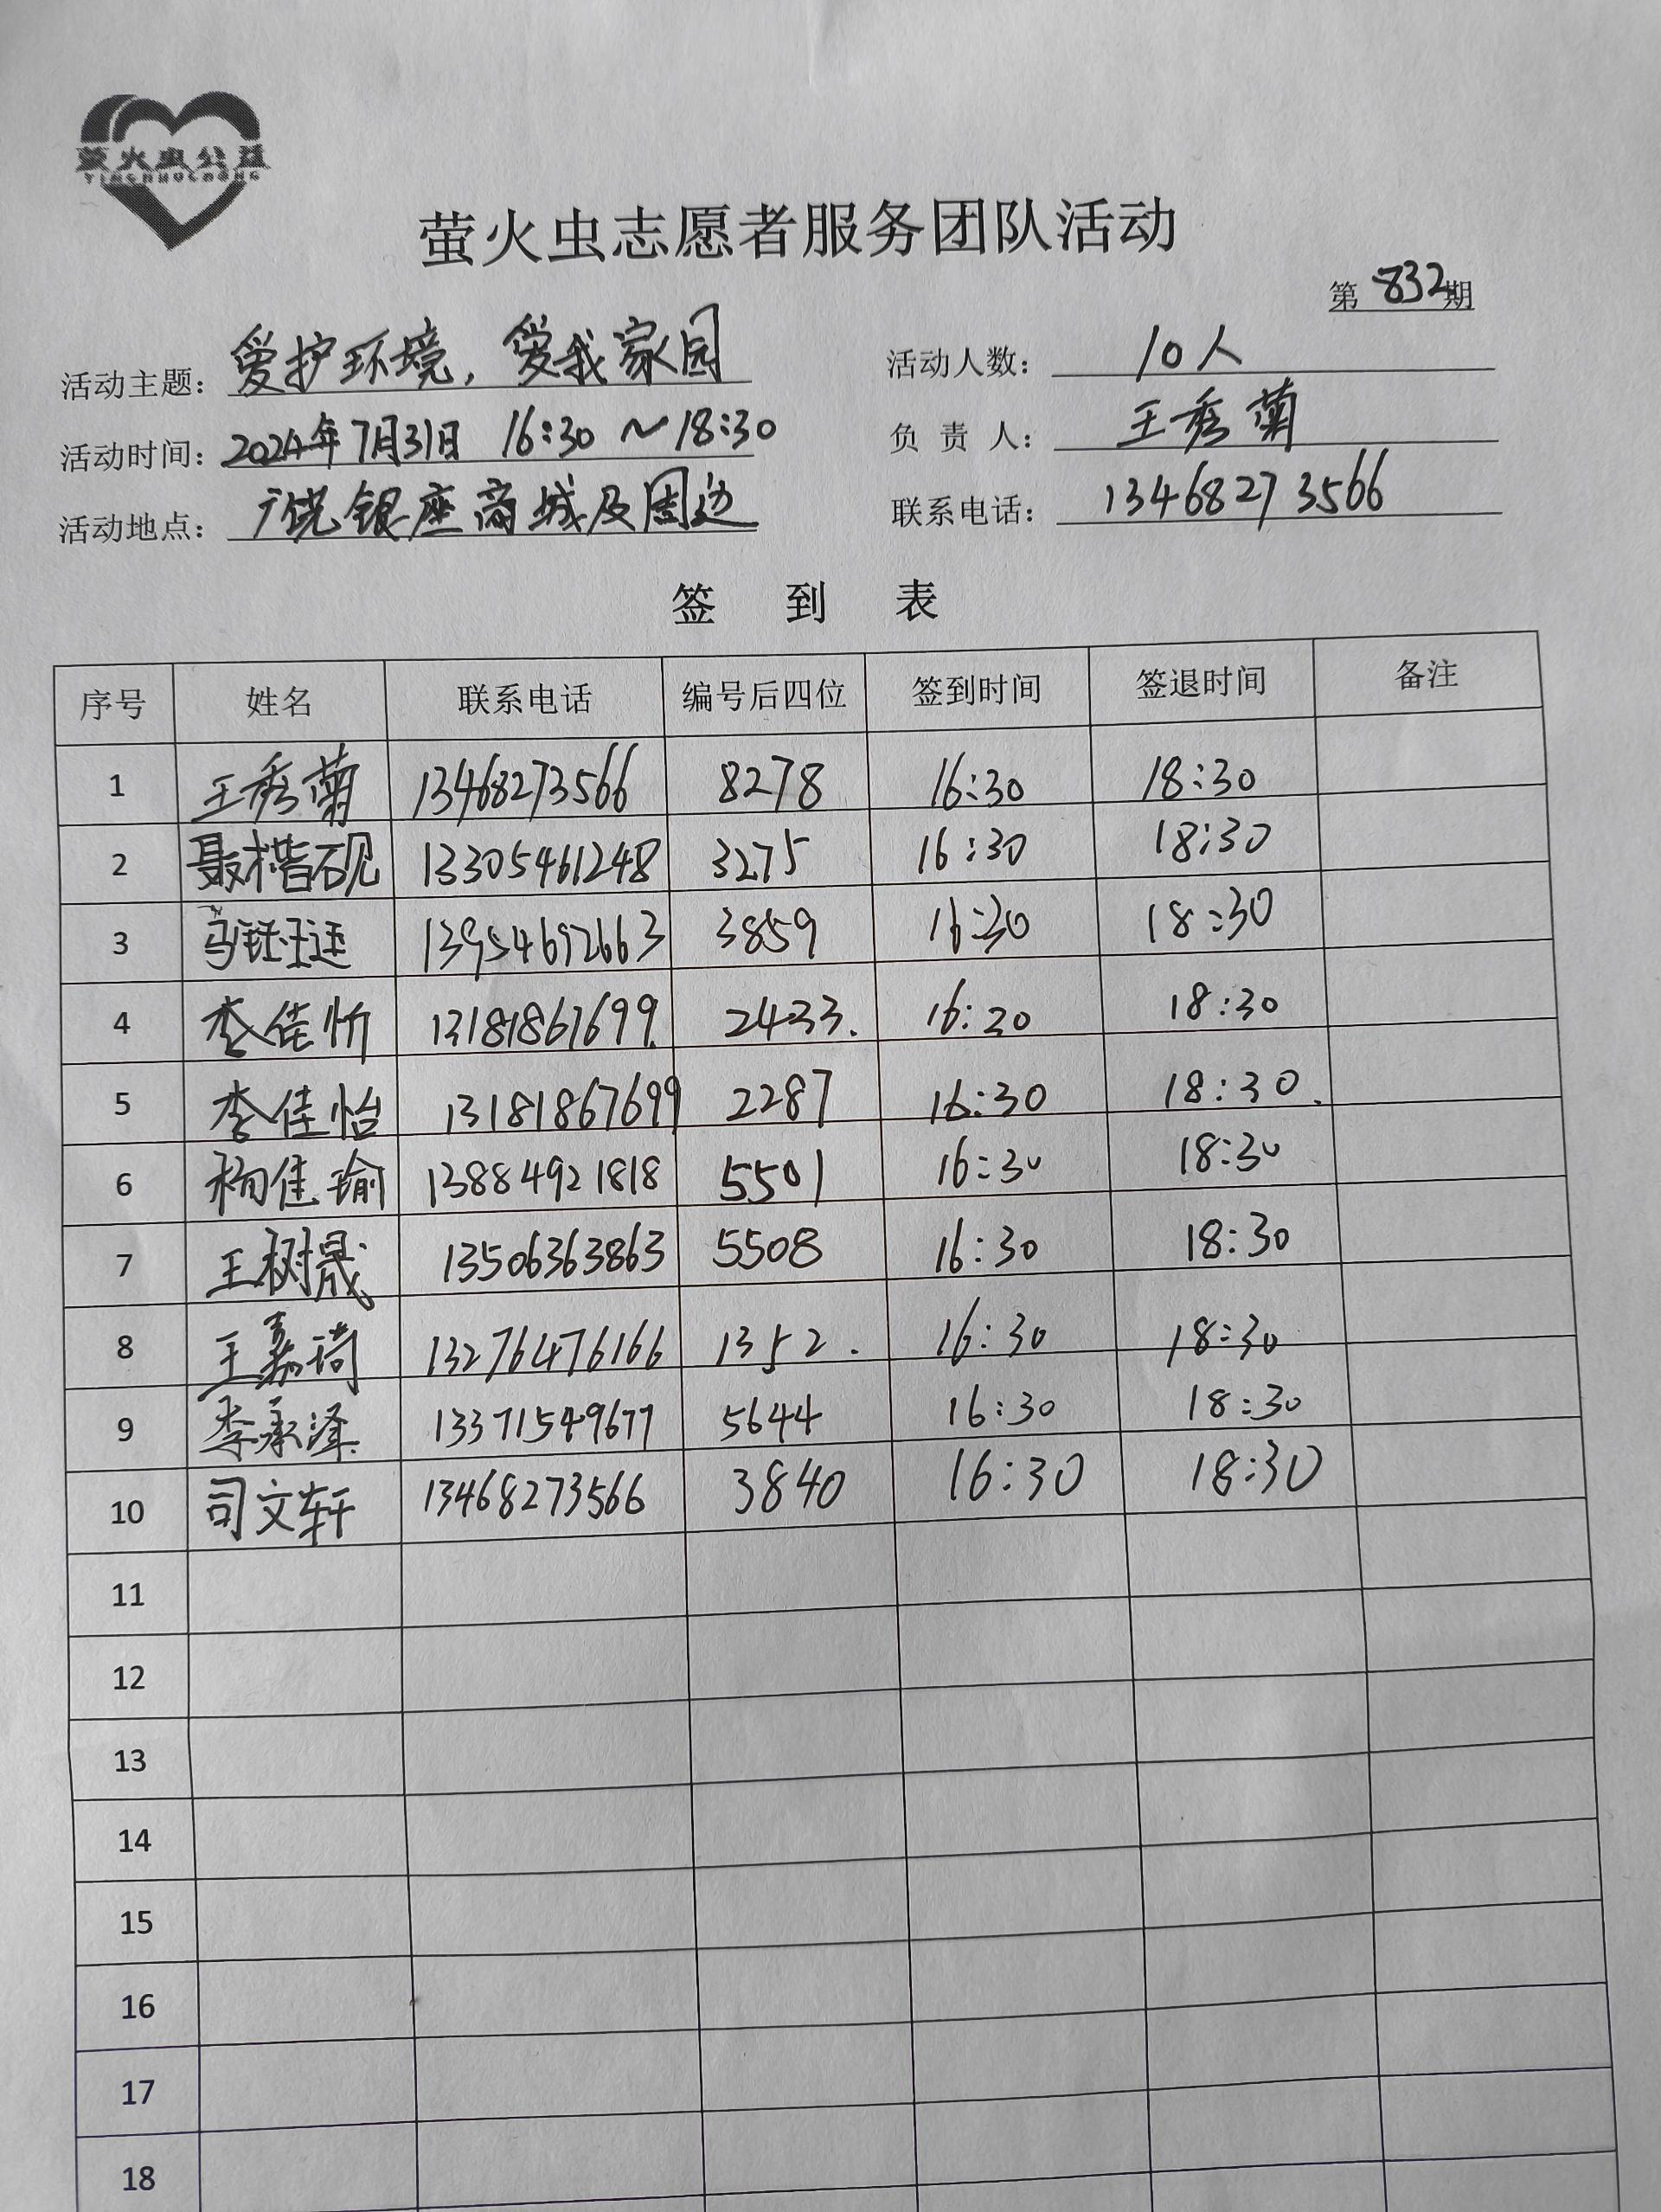 萤火虫公益
YINGHUOCHONG
萤火虫志愿者服务团队活动
第 832 期
活动主题: 爱护环境, 爱我家园 活动人数: 10人
活动时间: 2024年7月31日 16:30 ~ 18:30 负责人: 王秀菊
活动地点: 广饶银座商城及周边 联系电话: 13468273566
签到表
序号 姓名 联系电话 编号后四位 签到时间 签退时间 备注
1 王秀菊 13468273566 8278 16:30 18:30
2 聂楷砚 13305461248 3275 16:30 18:30
3 13954692663 3859 16:30 18:30
4 李佳忻 13181867699. 2433. 16:30 18:30
5 李佳怡 13181867699 2287 16:30 18:30.
6 杨佳瑜 13884921818 5501 16:30 18:30
7 王树晟 13506363863 5508 16:30 18:30
8 王嘉琦 13276476166 1352. 16:30 18:30
9 李承泽 13371549677 5644 16:30 18:30
10 司文轩 13468273566 3840 16:30 18:30
11
12
13
14
15
16
17
18